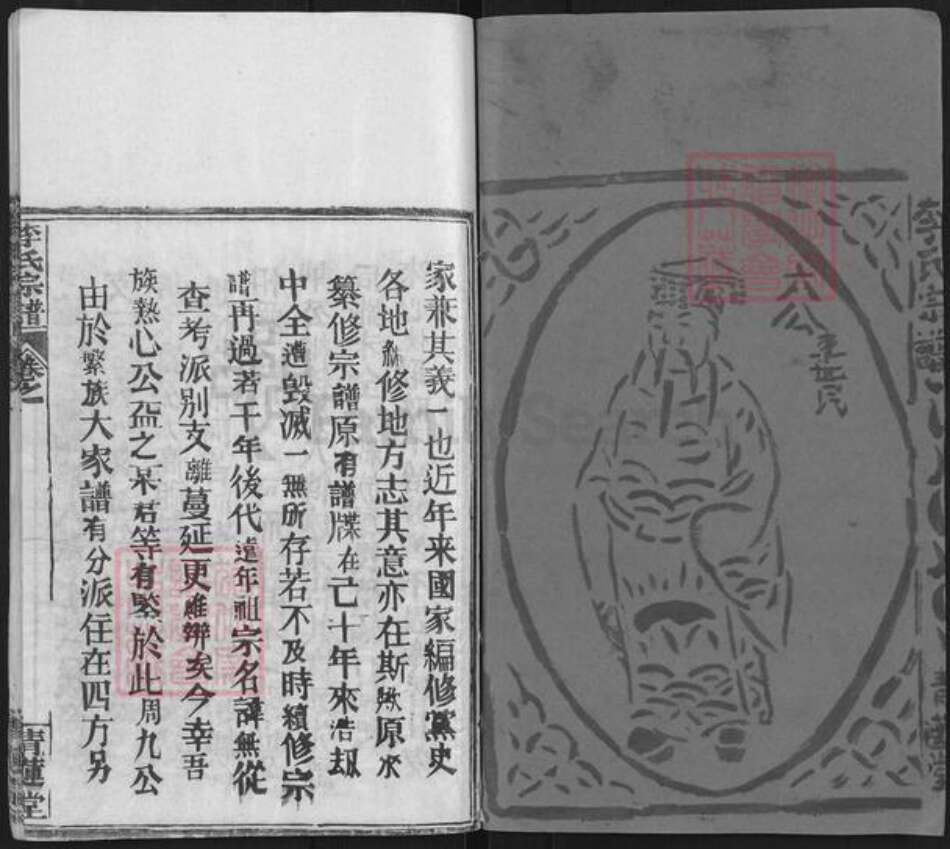 李氏宗譜
六公
李世民
家兼其義一也近年來國家編修黨史
各地 修地方志其意亦在斯 原來
纂修宗譜原有譜牒在己十年來浩劫
中全遭毀滅一無所存若不及時續修宗
譜再過若干年後代遠年祖宗名諱無從
查考派別支離蔓延更難辯矣今幸吾
族熱心公益之某君等有鑒於此周九公
由於繁族大家譜有分派住在四方另
李氏宗譜
卷之一
青蓮堂